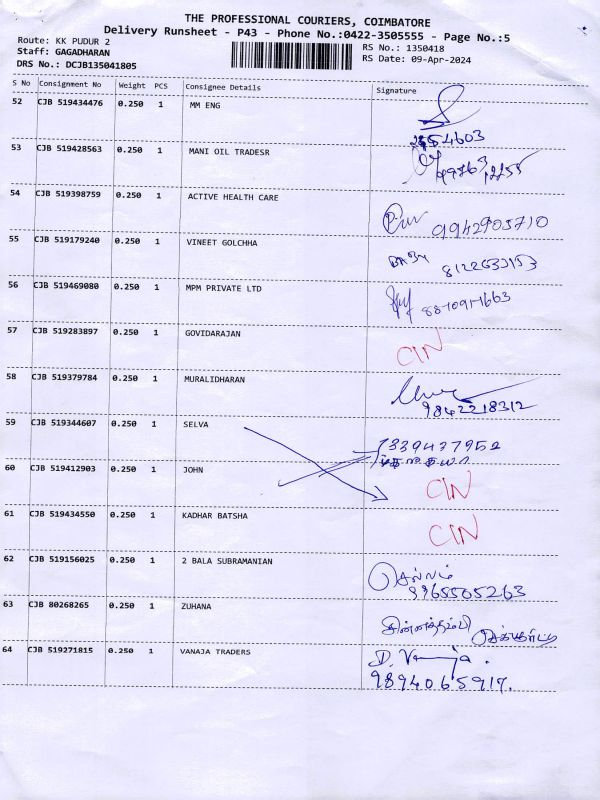 THE PROFESSIONAL COURIERS, COIMBATORE
Delivery Runsheet - P43 - Phone No.:0422-3505555 - Page No.:5
Route: KK PUDUR 2
RS No.: 1350418
Staff: GAGADHARAN
RS Date: 09-Apr-2024
DRS No.: DCJB135041805
S No Consignment No Weight PCS Consignee Details Signature
52 CJB 519434476 0.250 1 MM ENG
53 CJB 519428563 0.250 1 MANI OIL TRADESR
54 CJB 519398759 0.250 1 ACTIVE HEALTH CARE
9942905710
55 CJB 519179240 0.250 1 VINEET GOLCHHA
56 CJB 519469080 0.250 1 MPM PRIVATE LTD
57 CJB 519283897 0.250 1 GOVIDARAJAN
CIN
58 CJB 519379784 0.250 1 MURALIDHARAN
9842218312
59 CJB 519344607 0.250 1 SELVA
7339437952
60 CJB 519412903 0.250 1 JOHN
CIN
61 CJB 519434550 0.250 1 KADHAR BATSHA
CIN
62 CJB 519156025 0.250 1 2 BALA SUBRAMANIAN
செல்லம்
9965505263
63 CJB 80268265 0.250 1 ZUHANA
சின்னத்தம்பி
64 CJB 519271815 0.250 1 VANAJA TRADERS
D. Vanaja.
9894065917.